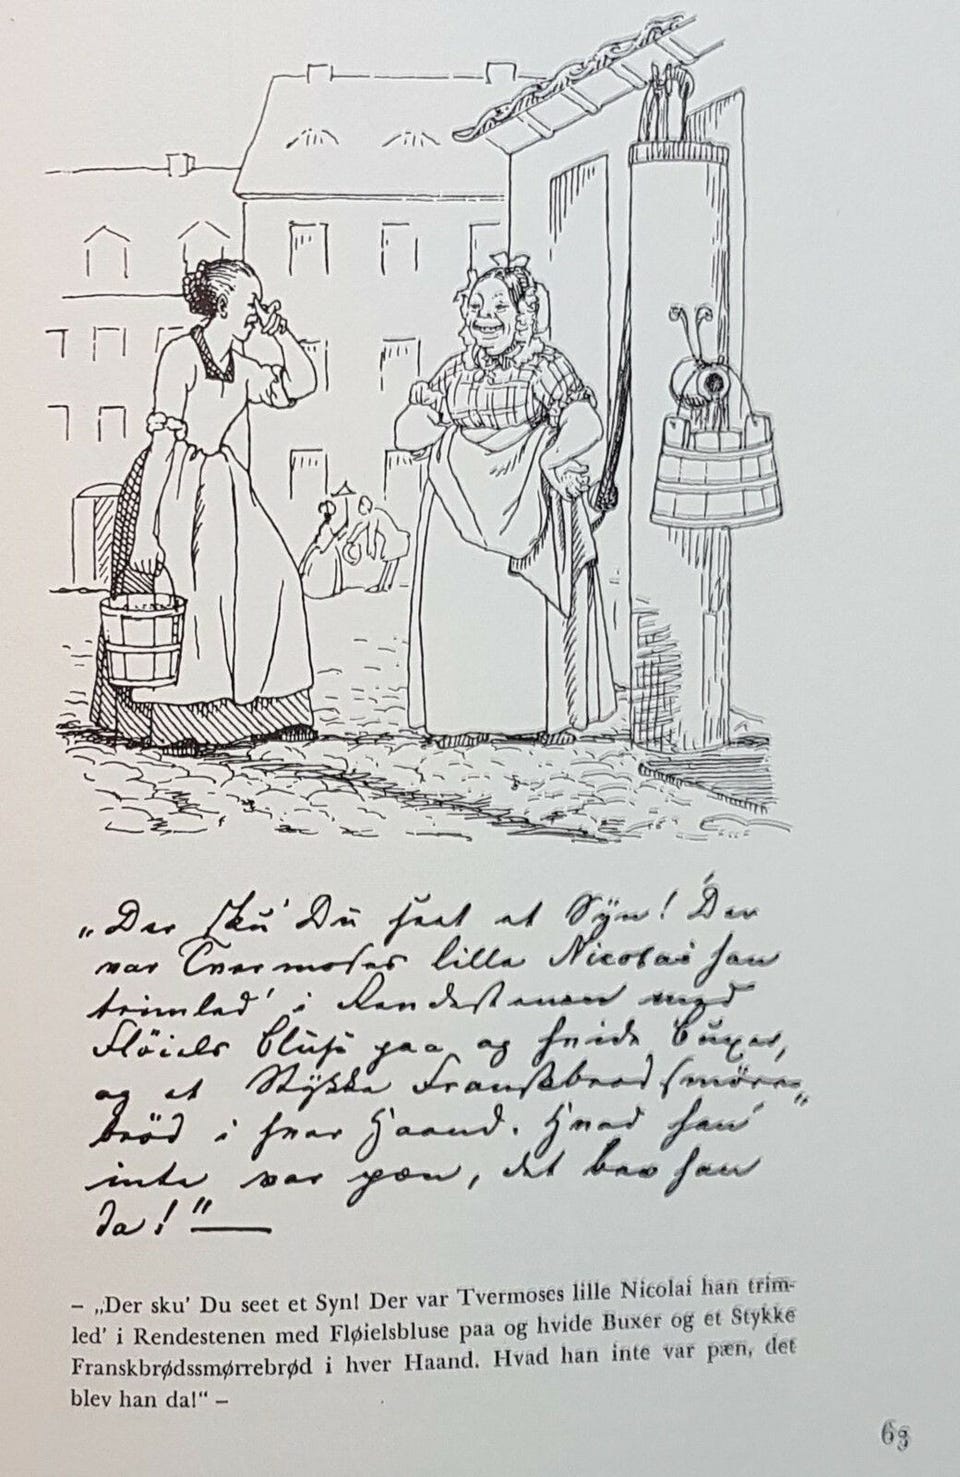 „Der sku' Du seet et Syn! Der
var Tvermoses lille Nicolai han
trimled' i Rendestenen med
Fløiels Bluse paa og hvide Buxer,
og et Stykke Franskbrødsmørre„
brød i hver Haand. Hvad han
inte var pæn, det blev han
da!"—
– „Der sku' Du seet et Syn! Der var Tvermoses lille Nicolai han trim-
led' i Rendestenen med Fløielsbluse paa og hvide Buxer og et Stykke
Franskbrødssmørrebrød i hver Haand. Hvad han inte var pæn, det
blev han da!“ –
63